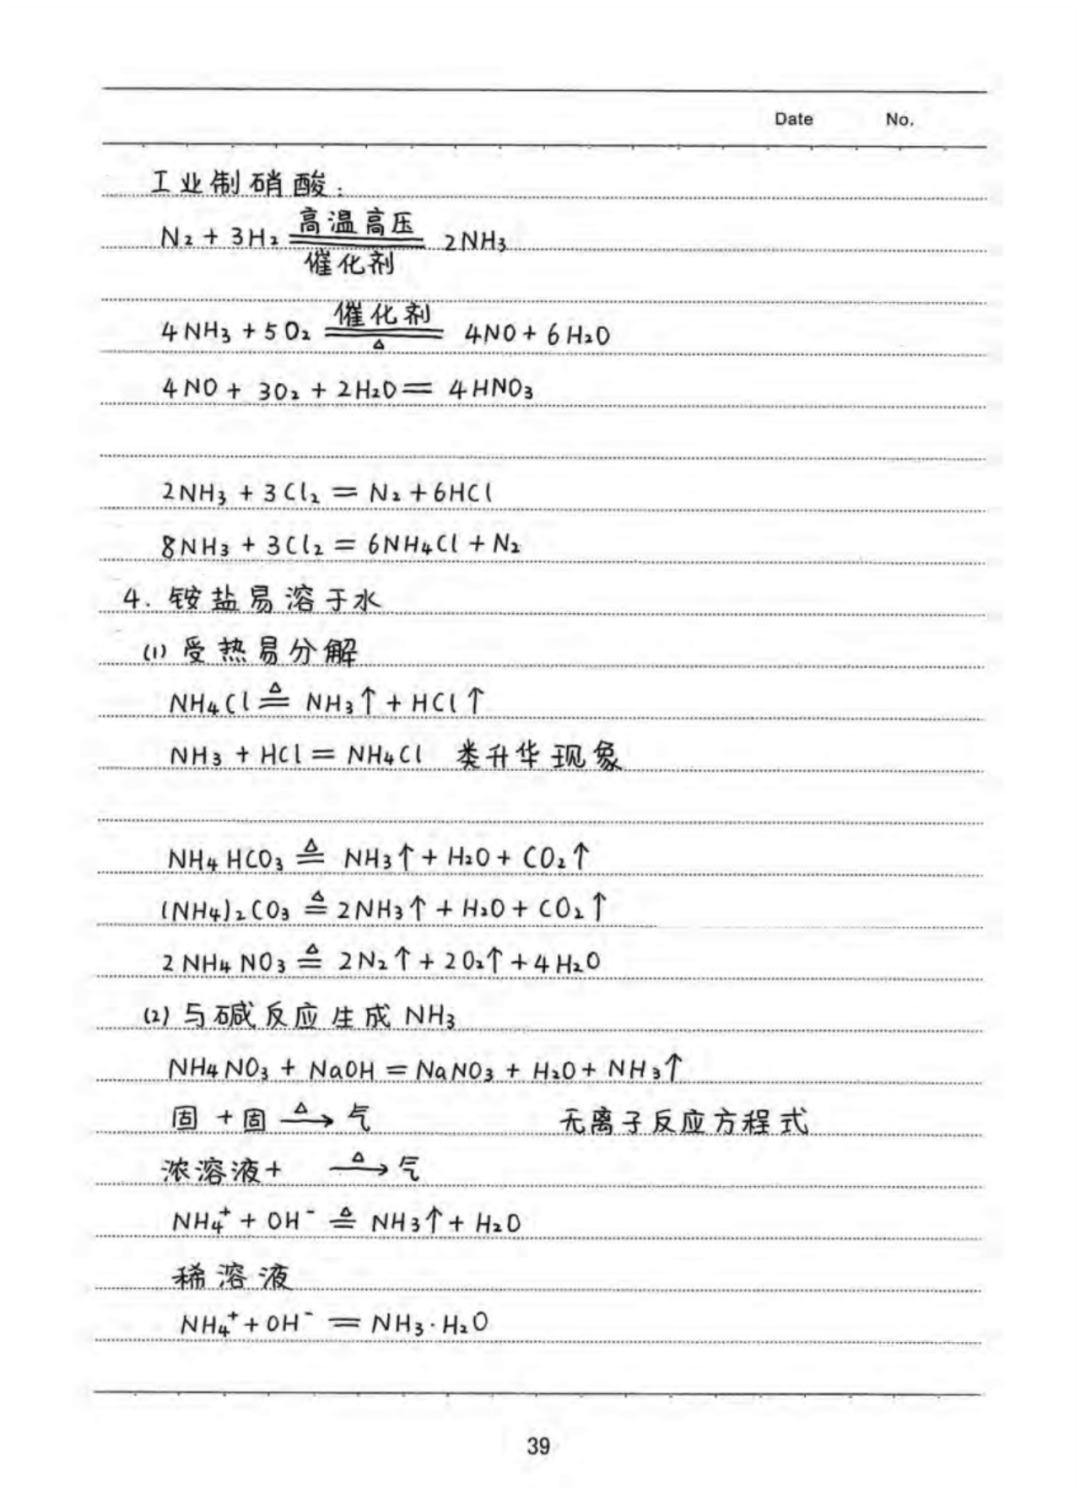 Date No.
工业制硝酸:
N₂ + 3H₂ 高温高压 ══ 催化剂 2NH₃
4NH₃ + 5O₂ 催化剂 ══ △ 4NO + 6H₂O
4NO + 3O₂ + 2H₂O ══ 4HNO₃
2NH₃ + 3Cl₂ = N₂ + 6HCl
8NH₃ + 3Cl₂ = 6NH₄Cl + N₂
4. 铵盐易溶于水
(1) 受热易分解
NH₄Cl ≜ NH₃↑ + HCl↑
NH₃ + HCl = NH₄Cl 类升华现象
NH₄HCO₃ ≜ NH₃↑ + H₂O + CO₂↑
(NH₄)₂CO₃ ≜ 2NH₃↑ + H₂O + CO₂↑
2NH₄NO₃ ≜ 2N₂↑ + 2O₂↑ + 4H₂O
(2) 与碱反应生成 NH₃
NH₄NO₃ + NaOH = NaNO₃ + H₂O + NH₃↑
固 + 固 △→ 气 无离子反应方程式
浓溶液 + △→ 气
NH₄⁺ + OH⁻ ≜ NH₃↑ + H₂O
稀溶液
NH₄⁺ + OH⁻ ══ NH₃·H₂O
39